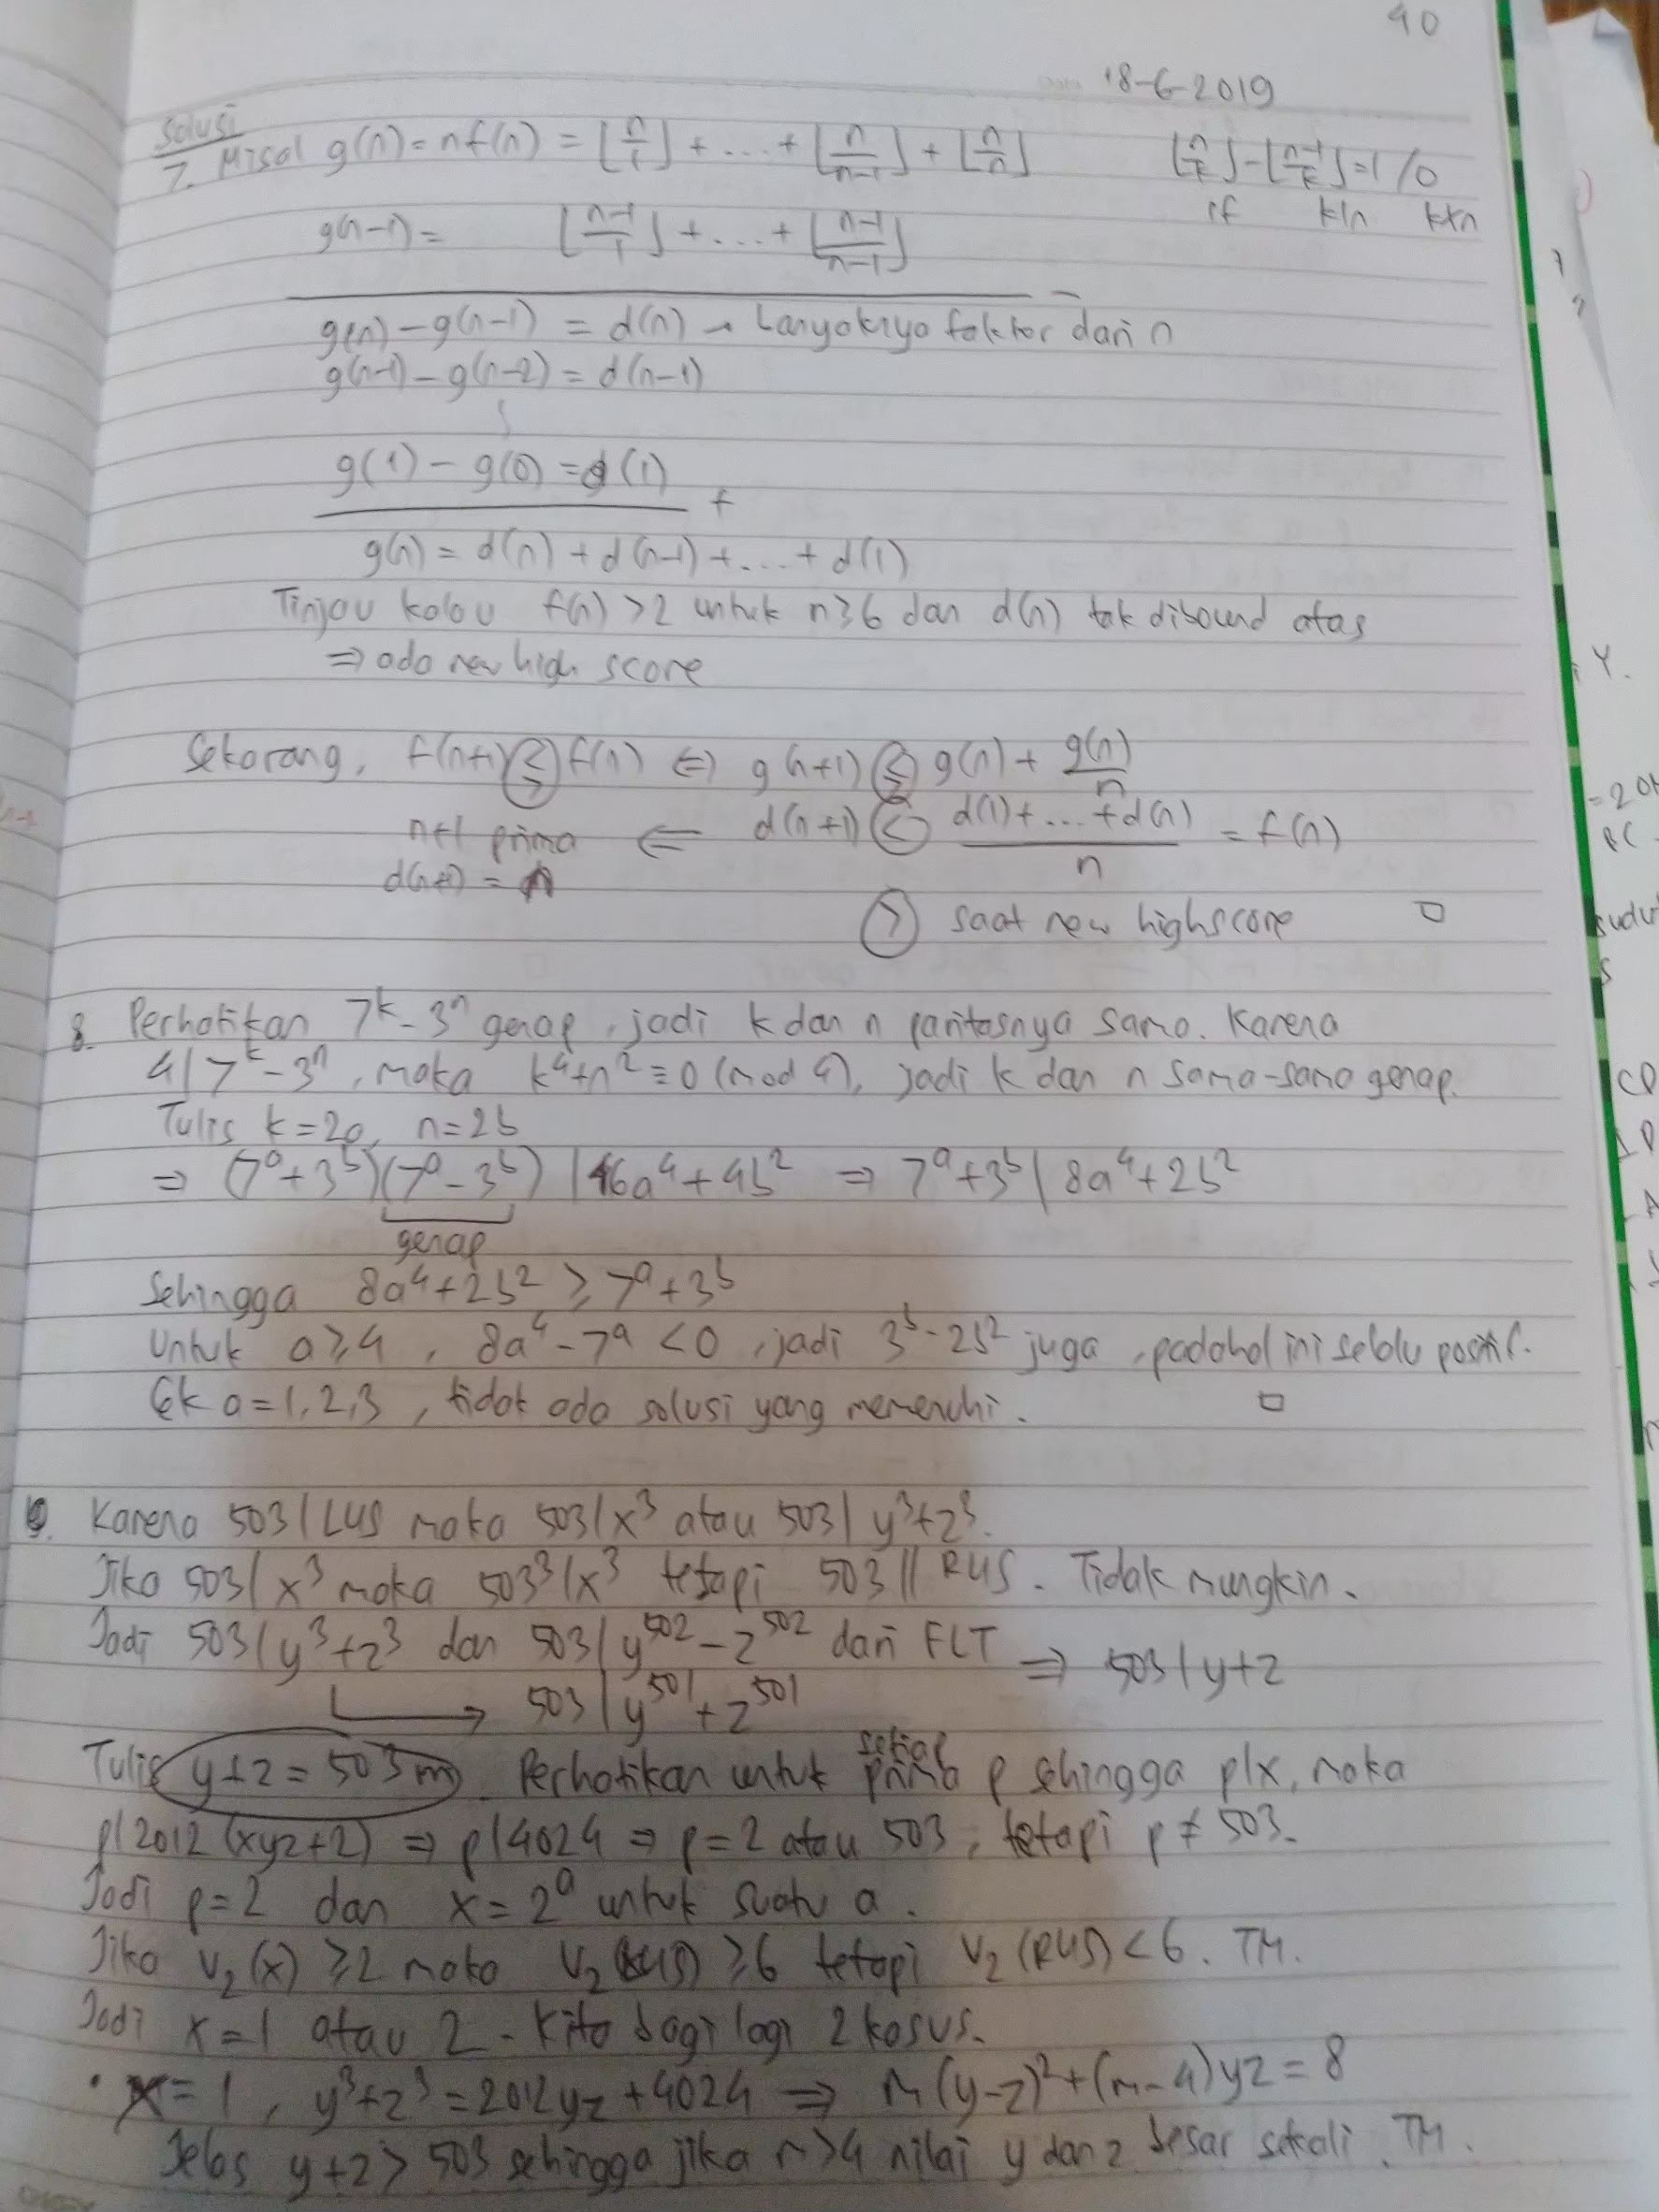 40
18-6-2019
Solusi
7. Misal g(n) = nf(n) = ⌊n/1⌋ + ... + ⌊n/(n-1)⌋ + ⌊n/n⌋ ⌊n/k⌋ - ⌊(n-1)/k⌋ = 1/0
if k|n k∤n
g(n-1) = ⌊(n-1)/1⌋ + ... + ⌊(n-1)/(n-1)⌋
g(n) - g(n-1) = d(n) → banyaknya faktor dari n
g(n-1) - g(n-2) = d(n-1)
g(1) - g(0) = d(1)
+
g(n) = d(n) + d(n-1) + ... + d(1)
Tinjau kalau f(n) > 2 untuk n ≥ 6 dan d(n) tak dibound atas
⇒ ada new high score
Sekarang, f(n+1) ≷ f(n) ⇔ g(n+1) ≷ g(n) + g(n)/n
n+1 prima ⇐ d(n+1) < (d(1) + ... + d(n))/n = f(n)
d(n+1) =
> saat new highscore □
8. Perhatikan 7^k - 3^n genap, jadi k dan n paritasnya sama. Karena
4 | 7^k - 3^n, maka k^4 + n^2 ≡ 0 (mod 4), jadi k dan n sama-sama genap.
Tulis k = 2a, n = 2b
⇒ (7^a + 3^b)(7^a - 3^b) | 16a^4 + 4b^2 ⇒ 7^a + 3^b | 8a^4 + 2b^2
genap
Sehingga 8a^4 + 2b^2 ≥ 7^a + 3^b
Untuk a ≥ 4, 8a^4 - 7^a < 0, jadi 3^b - 2b^2 juga, padahal ini selalu positif.
Cek a = 1, 2, 3, tidak ada solusi yang memenuhi. □
9. Karena 503 | LUS maka 503 | x^3 atau 503 | y^3 + z^3.
Jika 503 | x^3 maka 503^3 | x^3 tetapi 503 || RUS. Tidak mungkin.
Jadi 503 | y^3 + z^3 dan 503 | y^502 - z^502 dari FLT ⇒ 503 | y + z
→ 503 | y^501 + z^501
Tulis y + z = 503m. Perhatikan untuk setiap prima p sehingga p|x, maka
p | 2012(xyz + 2) ⇒ p | 4024 ⇒ p = 2 atau 503, tetapi p ≠ 503.
Jadi p = 2 dan x = 2^a untuk suatu a.
Jika v_2(x) ≥ 2 maka v_2(LUS) ≥ 6 tetapi v_2(RUS) < 6. TM.
Jadi x = 1 atau 2. Kita bagi lagi 2 kasus.
• x = 1, y^3 + z^3 = 2012yz + 4024 ⇒ m(y-z)^2 + (m-4)yz = 8
Jelas y + z > 503 sehingga jika m > 4 nilai y dan z besar sekali. TM.